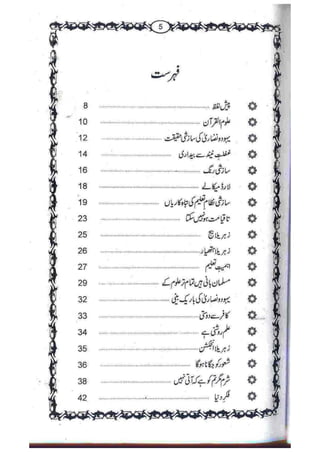 5
فہرست
پیش لفظ 8
علوم القرآن 10
یہود و نصاریٰ کی سازشی حقیقت 12
غفلت نیند سے بیداری 14
سازشی رنگ 16
لارڈ میکالے 18
سازشی نظام تعلیم کی تباہ کاریاں 19
تا قیامت ہو نہیں سکتا 23
زہریلا بیج 25
زہریلا ہتھیار 26
اہمیت تعلیم 27
مسلمان بانی ہیں تمام تر علوم کے 29
یہود و نصاریٰ کی باریک بینی 32
کافر سے دوستی 33
علم روشنی ہے 34
زہریلا انجکشن 35
شعور کو جگانا ہوگا 36
شرم مگر تم کو ہے کہ آتی نہیں 38
فکر دنیا 42